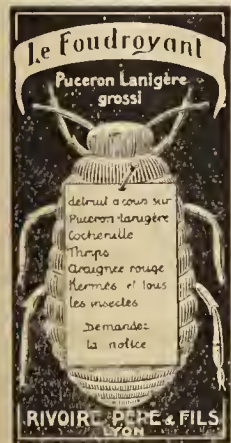 Le Foudroyant
Puceron Lanigère
grossi
détruit à coup sur
Puceron lanigère
Cochenille
Thrips
Araignée rouge
Kermès et tous
les insectes
Demandez
la notice
RIVOIRE PÈRE & FILS
LYON